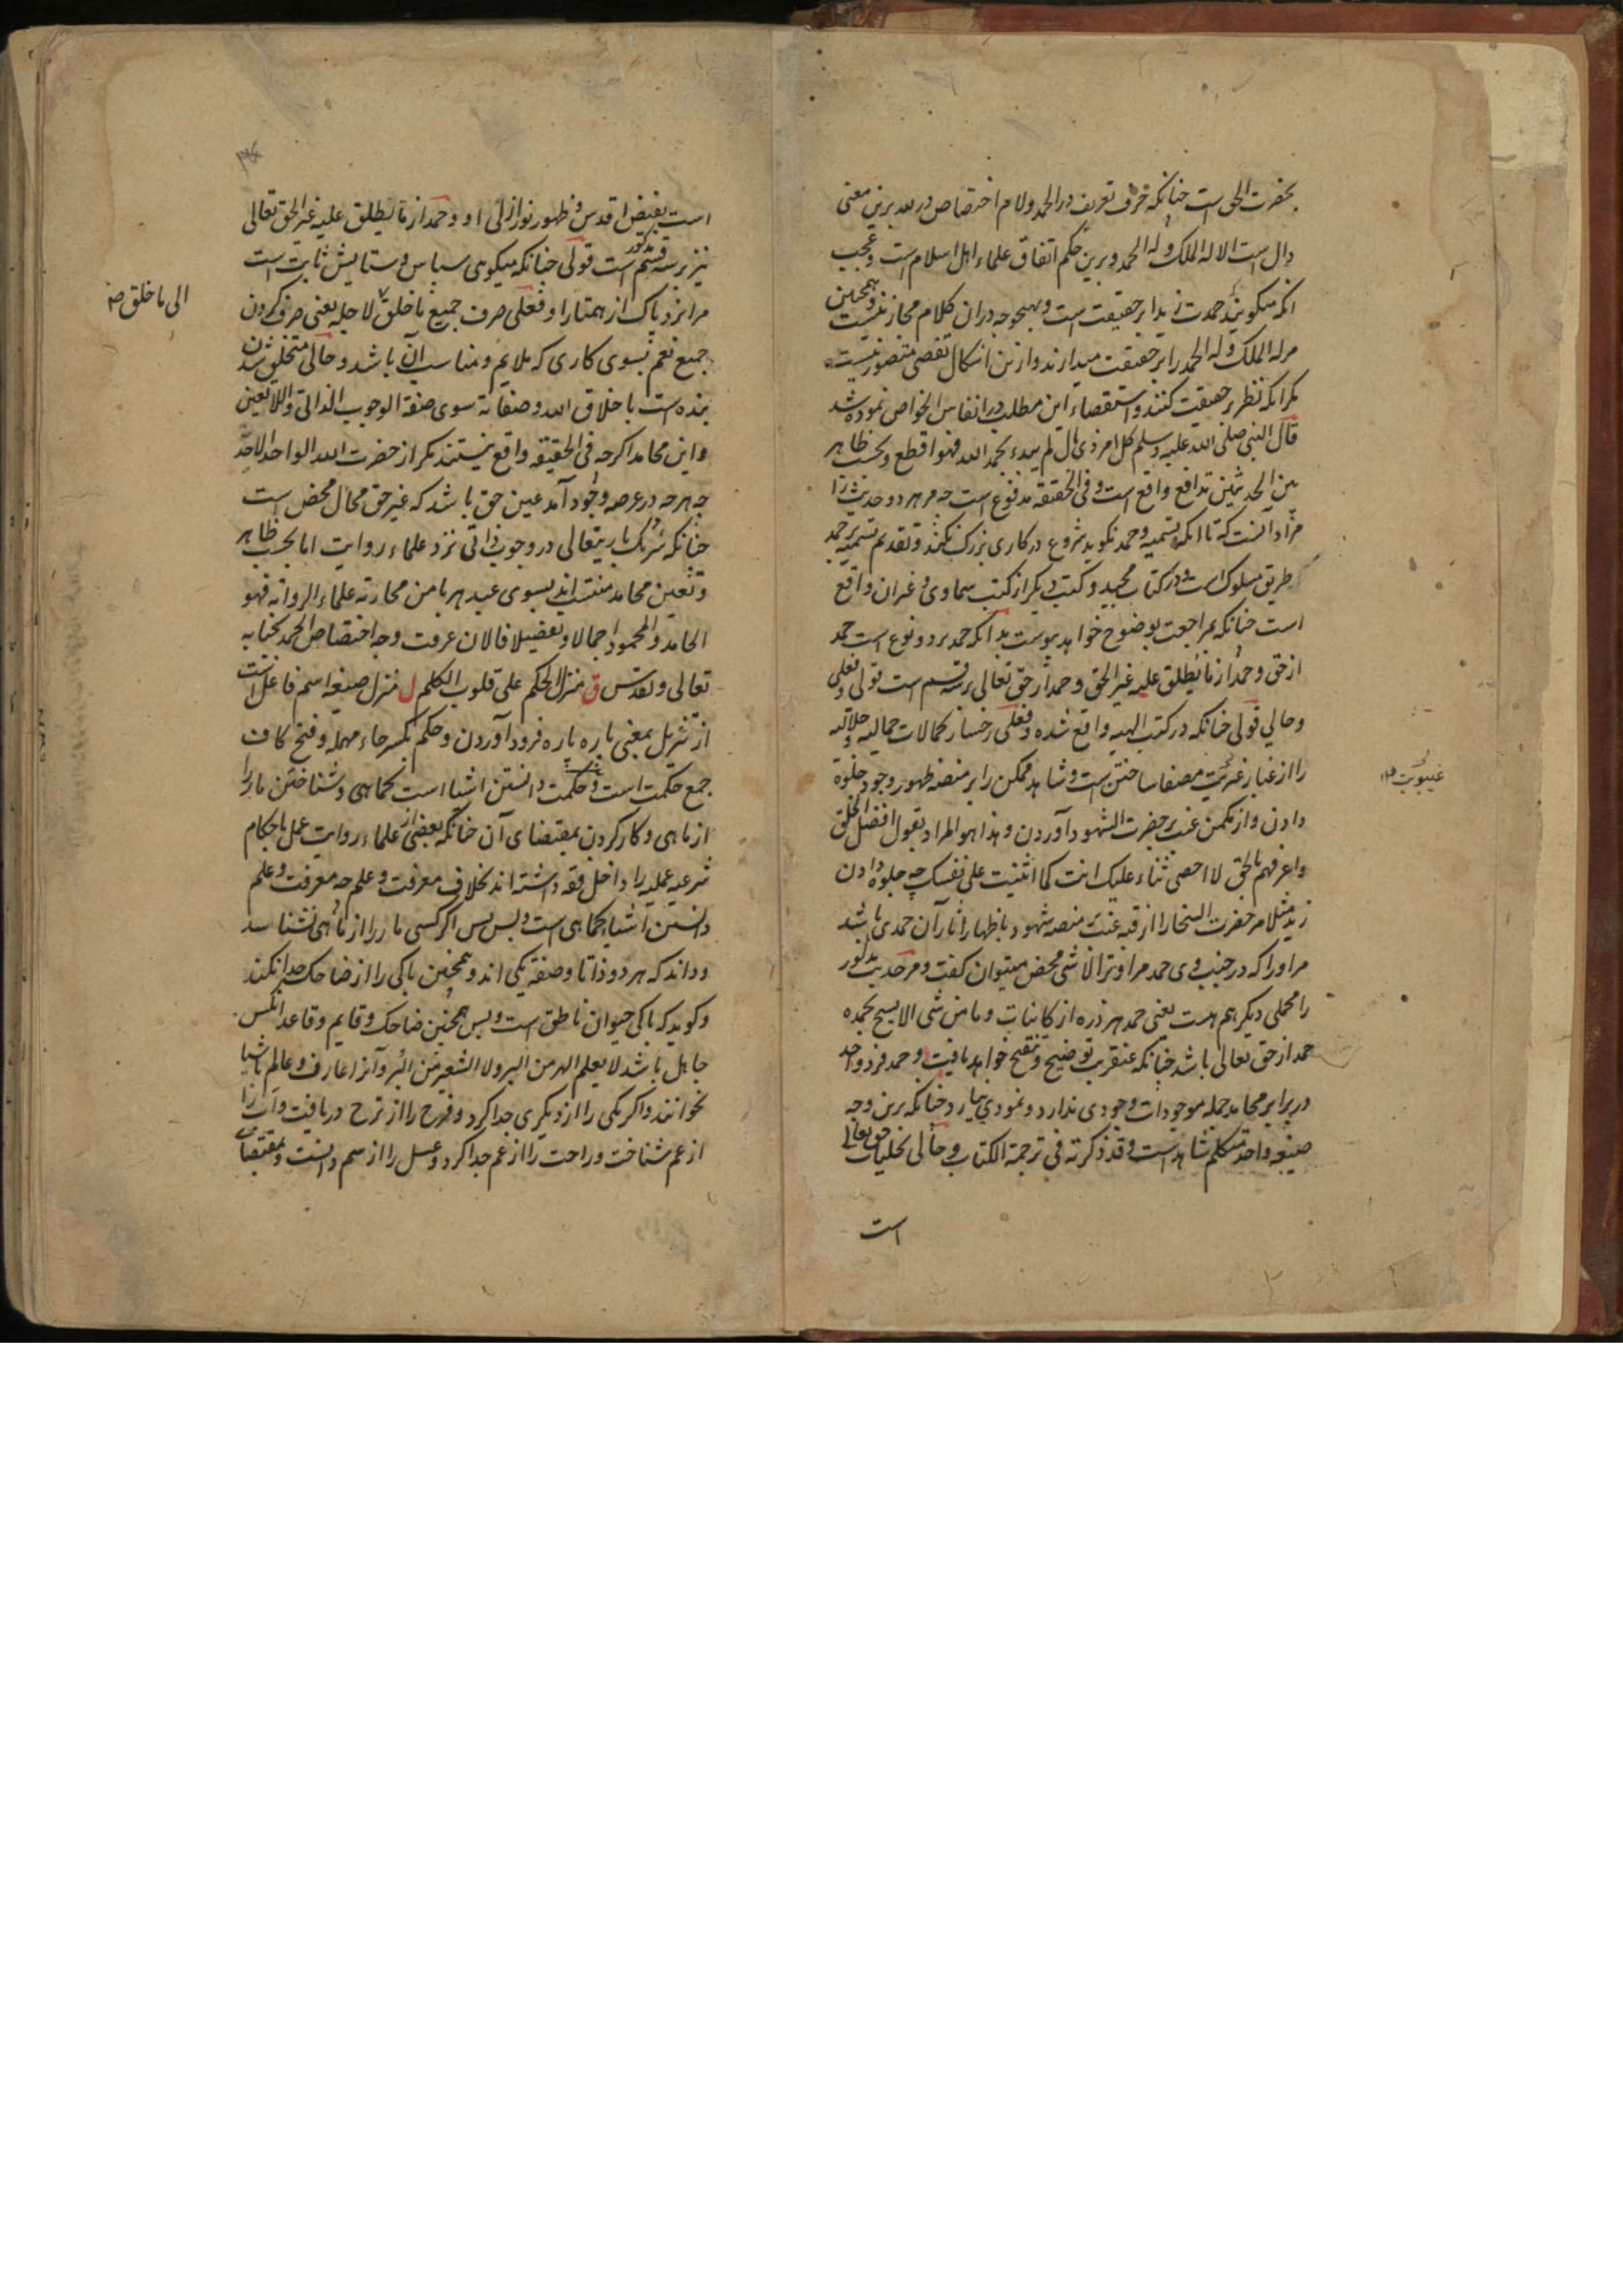 بحضرت الحق است چنانکه حرف تعریف در الحمد ولام اختصاص در لله برین معنی
دال است الا له الملک وله الحمد وبرین حکم اتفاق علماء اهل اسلام است وعجب
انکه میکویند حمدت زیدا بر حقیقت است وبهیچوجه دران کلام مجاز نیست وهمچنین
مر له الملک وله الحمد را بر حقیقت میدارند وازین اشکال تفصی متصور نیست
مکر انکه نظر بر حقیقت کنند واستقصاء این مطلب در انفاس الخواص نموده شد
قال النبی صلی الله علیه وسلم کل امر ذی بال لم یبدء بحمد الله فهو اقطع وبحسب ظاهر
بین الحدیثین تدافع واقع است وفی الحقیقة مدفوع است چه مر هر دو حدیث را
مراد آنست که تا انکه تسمیه وحمد نکوید شروع در کاری بزرک نکنند وتقدیم تسمیه بر حمد
طریق مسلوک است در کتاب مجید وکتب دیکر از کتب سماوی وغیران واقع
است چنانکه بمراجعت بوضوح خواهد پیوست بدانکه حمد بر دو نوع است حمد
از حق وحمد از ما یطلق علیه غیر الحق وحمد از حق تعالی بر سه قسم است قولی وفعلی
وحالی قولی چنانکه در کتب الهیه واقع شده وفعلی رخسار کمالات جمالیه وجلالیه
را از غبار غیریت مصفا ساختن است وشاهد ممکن را بر منصه ظهور وجود جلوه
دادن واز مکمن غیب بحضرت الشهود آوردن وهذا هو المراد بقول افضل الخلق
واعرفهم بالحق لا احصی ثناء علیک انت کما اثنیت علی نفسک چه جلوه دادن
زید مثلا مر حضرت النجار را از غیب منصه شهود باظهار آثار آن حمدی باشد
مر او را که در جنب وی حمد مر او را لا شی محض میتوان کفت ومر حدیث مذکور
را محملی دیکر هم هست یعنی حمد هر ذره از کاینات وما من شی الا یسبح بحمده
حمد از حق تعالی باشد چنانکه عنقریب توضیح وتنقیح خواهد یافت وحمد فرد واحد
در برابر محامد جمله موجودات وجودی ندارد ونمودی نیارد چنانکه برین وجه
صیغه واحد متکلم شاهد است وقد ذکرته فی ترجمة الکتاب وحالی تجلیات حق تعالی
است
غیبوبت
است بفیض اقدس وظهور نور ازلی او وحمد از ما یطلق علیه غیر الحق تعالی
نیز بر سه قسم مذکور است قولی چنانکه میکوی سپاس وستایش ثابت است
مر ایزد پاک از همتا را وفعلی صرف جمیع ما خلق لاجله یعنی صرف کردن
جمیع نعم بسوی کاری که ملایم ومناسب آن باشد وحالی متخلق شدن
بنده است باخلاق الله وصفاته سوی صفة الوجوب الذاتی واللاتعین
واین محامد اکرچه فی الحقیقه واقع نیستند مکر از حضرت الله الواحد الاحد
چه هرچه در عرصه وجود آمد عین حق باشد که غیر حق محال محض است
چنانکه شریک باریتعالی در وجوب ذاتی نزد علماء روایت اما بحسب ظاهر
وتعین محامد منتسب اند بسوی عبد هربا من محاربة علماء الروایة فهو
الحامد والمحمود اجمالا وتفصیلا فالان عرفت وجه اختصاص الحمد بجنابه
تعالی وتقدس ق منزل الحکم علی قلوب الکلم ل منزل صیغه اسم فاعل است
از تنزیل بمعنی پاره پاره فرود آوردن وحکم بکسر حاء مهمله وفتح کاف
جمع حکمت است وحکمت دانستن اشیا است کماهی وشناختن مار را
از ماهی وکار کردن بمقتضای آن چنانکه بعضی از علماء روایت عمل باحکام
شرعیه عملیه را داخل فقه داشته اند بخلاف معرفت وعلم چه معرفت وعلم
دانستن اشیا کماهی است وبس پس اکر کسی مار را از ماهی نشناسد
وداند که هر دو ذاتا وصفة یکی اند وهمچنین باکی را از ضاحک جدا نکند
وکوید که باکی حیوان ناطق است وبس همچنین ضاحک وقایم وقاعد انکس
جاهل باشد لا یعلم الهر من البر ولا الشعیر من البر وآنرا عارف وعالم باشیا
نخوانند واکر یکی را از دیکری جدا کرد وفرح را از ترح دریافت
از عم شناخت وراحت را از غم جدا کرد وعسل را از سم دانست وبمقتضای
الی ما خلق